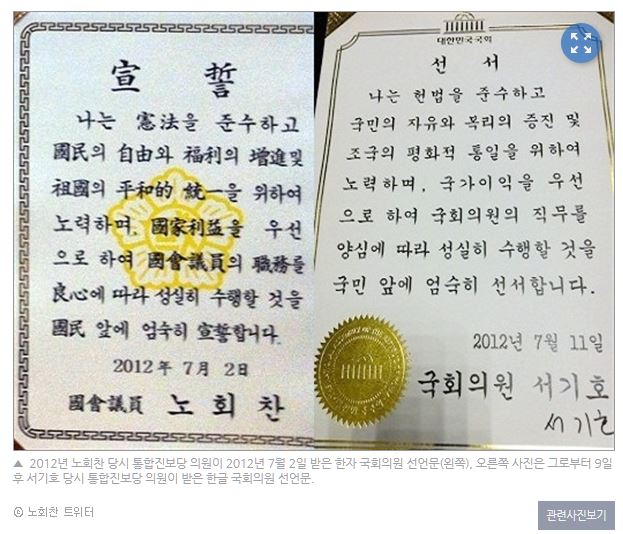 宣 誓
나는 憲法을 준수하고
國民의 自由와 福利의 增進및
祖國의 平和的 統一을 위하여
노력하며, 國家利益을 우선
으로 하여 國會議員의 職務를
良心에 따라 성실히 수행할 것을
國民 앞에 엄숙히 宣誓합니다.
2012年 7月 2日
國會議員 노회찬
대한민국국회
선 서
나는 헌법을 준수하고
국민의 자유와 복리의 증진 및
조국의 평화적 통일을 위하여
노력하며, 국가이익을 우선
으로 하여 국회의원의 직무를
양심에 따라 성실히 수행할 것을
국민 앞에 엄숙히 선서합니다.
2012년 7월 11일
국회의원 서기호
서기호
▲ 2012년 노회찬 당시 통합진보당 의원이 2012년 7월 2일 받은 한자 국회의원 선언문(왼쪽), 오른쪽 사진은 그로부터 9일
후 서기호 당시 통합진보당 의원이 받은 한글 국회의원 선언문.
ⓒ 노회찬 트위터
관련사진보기